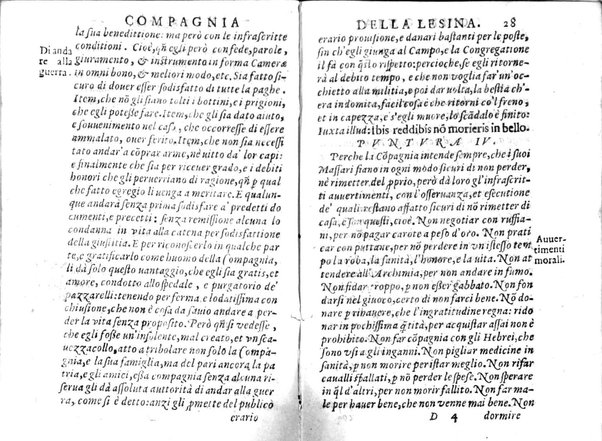 COMPAGNIA
Di anda
re alla
guerra.
la sua benedittione: ma però con le infrascritte
conditioni. Cioè, qñ egli può con fede, parole,
giuramento, & instrumento in forma Cameræ
in omni bono, & meliori modo, etc. Sia fatto si-
curo di douer esser sodisfatto di tutte la paghe.
Item, che nõ gli siano tolti i bottini, e i prigioni,
che egli potesse fare. Item, che gli sia dato aiuto,
e souuenimento nel caso, che occorresse di essere
ammalato, ouer ferito. Item, che non sia necessi
tato andar a cõprar arme, nè uitto da' lor capi:
e finalmente che sia per riceuer grado, e i debiti
honori che gli peruerriano di ragione, qñ p qual
che fatto egregio li uenga a meritare. E qualun-
que andarà senza prima sodisfare a' predetti do
cumenti, e precetti: senza remissione alcuna lo
condanna in vita alla catena per sodisfattione
della giustitia. E per riconoscerlo in qualche par
te, e gratificarlo come huomo della compagnia,
li dà solo questo uantaggio, che egli sia gratis, et
amore, condotto allo spedale, e purgatorio de'
pazzarelli: tenendo per ferma, e lodatissima con
chiusione, che non è cosa da sauio andare a per-
der la vita senza proposito. Però qñ si vedesse,
che egli fosse un'insolente, mal creato, et vn sca-
uezzacollo, atto a tribolare non solo la compa-
gnia, e la sua famiglia, ma del pari ancora la pa
tria, e gli amici, essa compagnia senza alcuna ri
serua gli dà assoluta autorità di andar alla guer
ra, come si è detto: anzi gli pmette del publico
erario
DELLA LESINA. 28
erario prouisione, e danari bastanti per le poste,
fin ch'egli giunga al Campo, e la Congregatione
il fà con qsto rispetto: percioche, se egli ritorne-
rà al debito tempo, e che non voglia far un'oc-
chietto alla militia, e poi dar volta, la bestia ch'
era indomita, facil cosa è che ritorni co'l freno,
et in capezza, e s'egli muore, lo scãdalo è finito:
Iuxta illud: Ibis redibis nõ morieris in bello.
PVNTVRA IV.
Perche la Cõpagnia intende sempre, che i suoi
Massari siano in ogni modo sicuri di non perder,
nè rimetter del pprio, però dà loro gl'infrascritti
auuertimenti, con l'osseruanza, et esecutione
de' quali restano assatto sicuri di nõ rimetter di
casa, e son questi, cioè. Non negotiar con ruffia-
ni, per nõ pagar carote a peso d'oro. Non prati
car con puttane, per nõ perdere in vn istesso tem
po la roba, la sanità, l'honore, e la uita. Non at
tendere all'Archimia, per non andare in fumo.
Non fidar troppo, p non esser gabbato. Non fon
darsi nel giuoco, certo di non farci bene. Nõ do
nare p rihauere, che l'ingratitudine regna: ridu
nar in pochissima qtità, per acquistar assai non è
prohibito. Non far cõpagnia con gli Hebrei, che
sono vsi a gli inganni. Non pigliar medicine in
sanità, p non morire meschin meglio. Non rifar
caualli spallati, p nõ perder le spese. Non sperare
in ql d'altri, per non morir fallito. Non far ma-
le per hauer bene, che non venne mai bene. Non
Auuer-
timenti
morali.
D 4 dormire